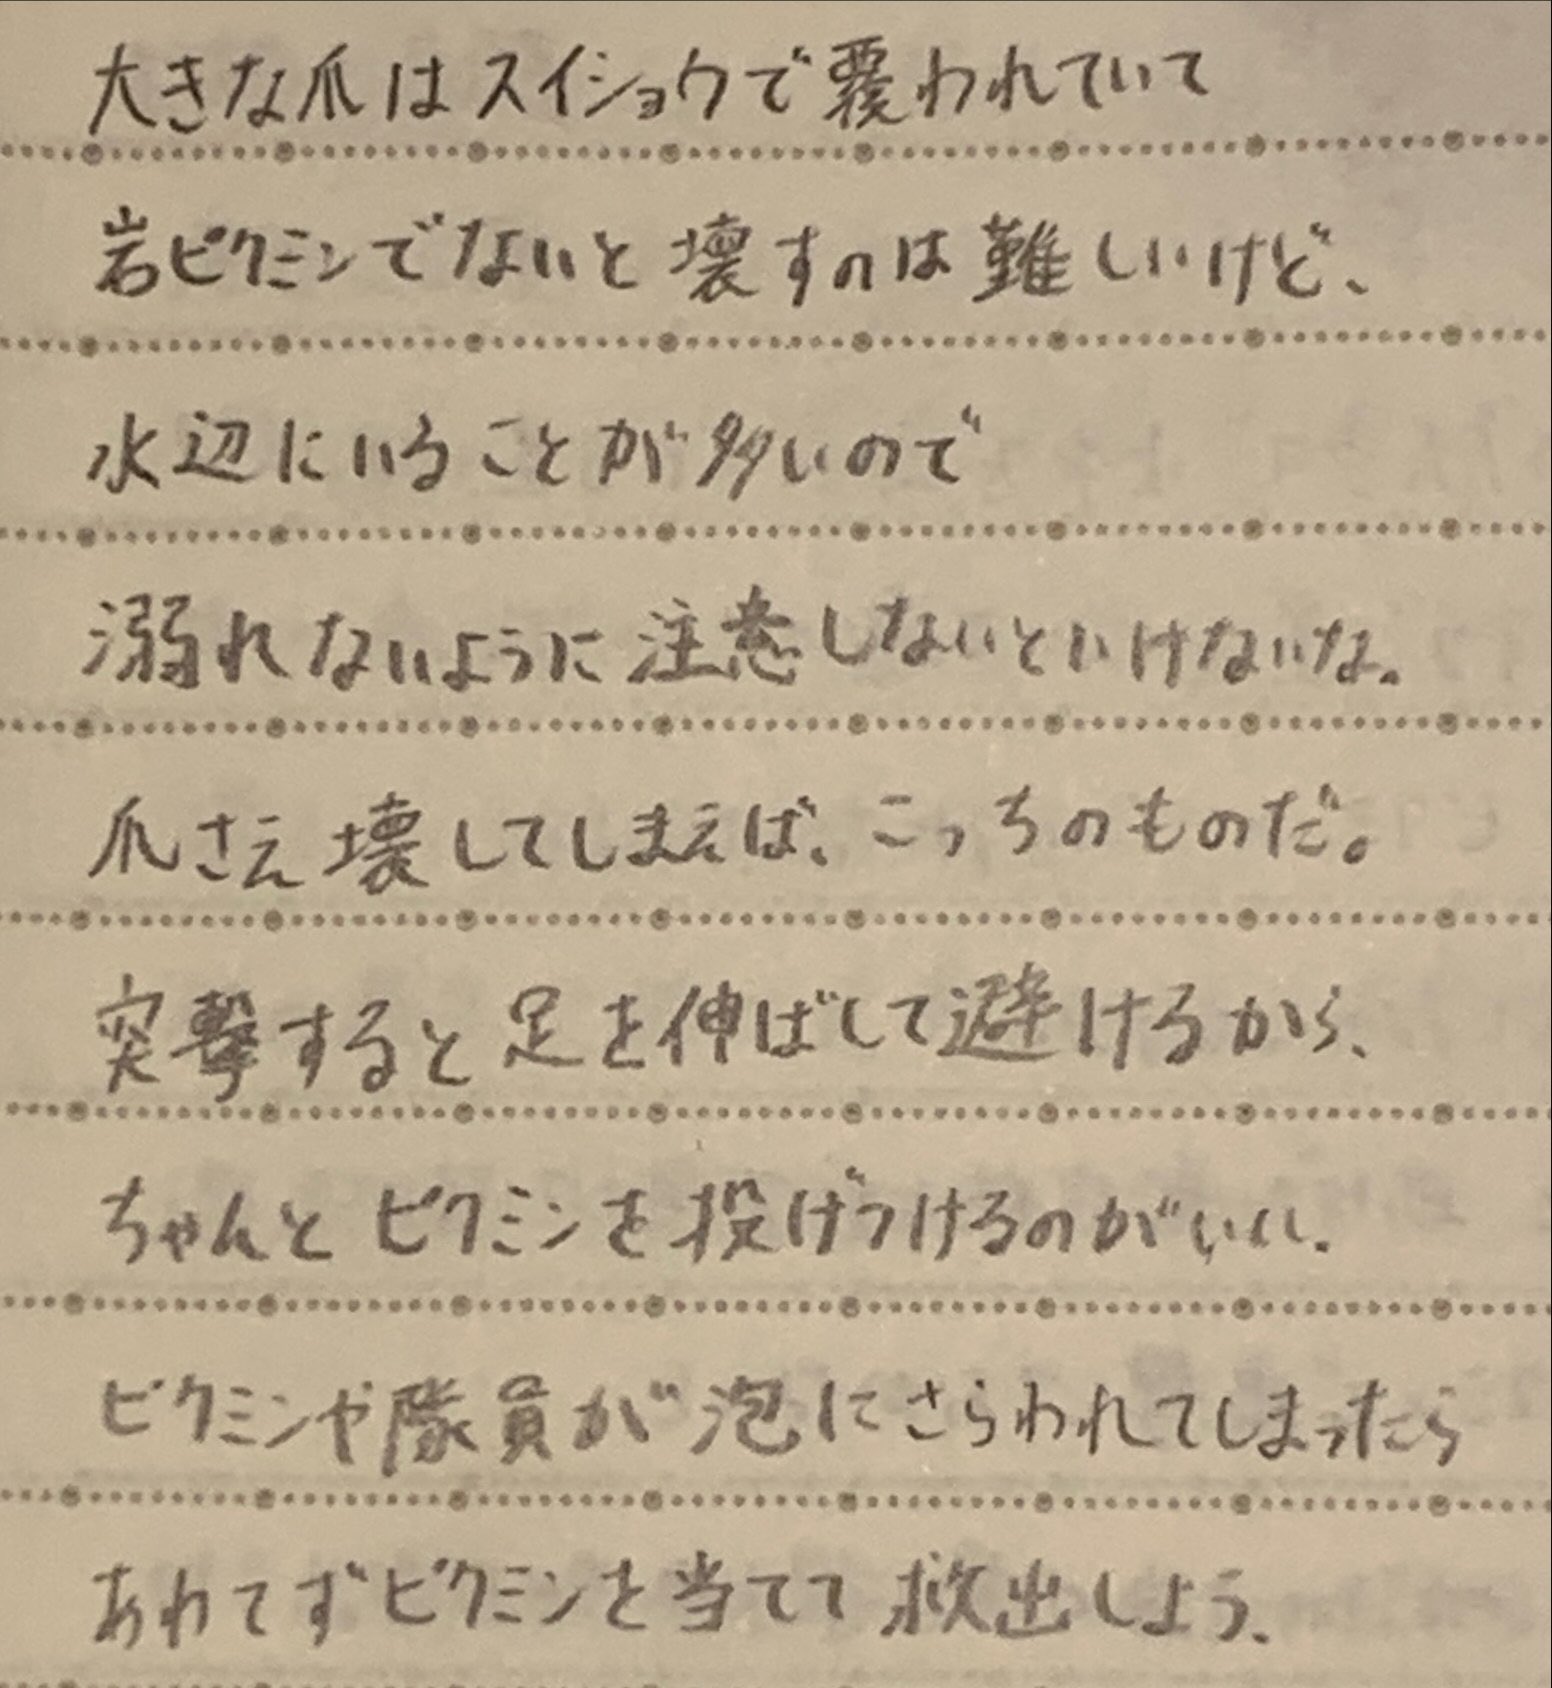 大きな爪はスイショウで覆われていて
岩ピクミンでないと壊すのは難しいけど、
水辺にいることが多いので
溺れないように注意しないといけないな。
爪さえ壊してしまえば、こっちのものだ。
突撃すると足を伸ばして避けるから、
ちゃんとピクミンを投げつけるのがいい.
ピクミンや隊員が泡にさらわれてしまったら
あわてずピクミンを当てて救出しよう、